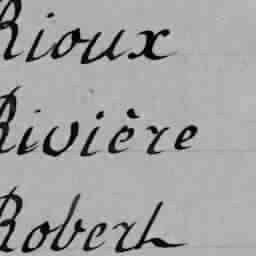 Rioux
Rivière
Robert